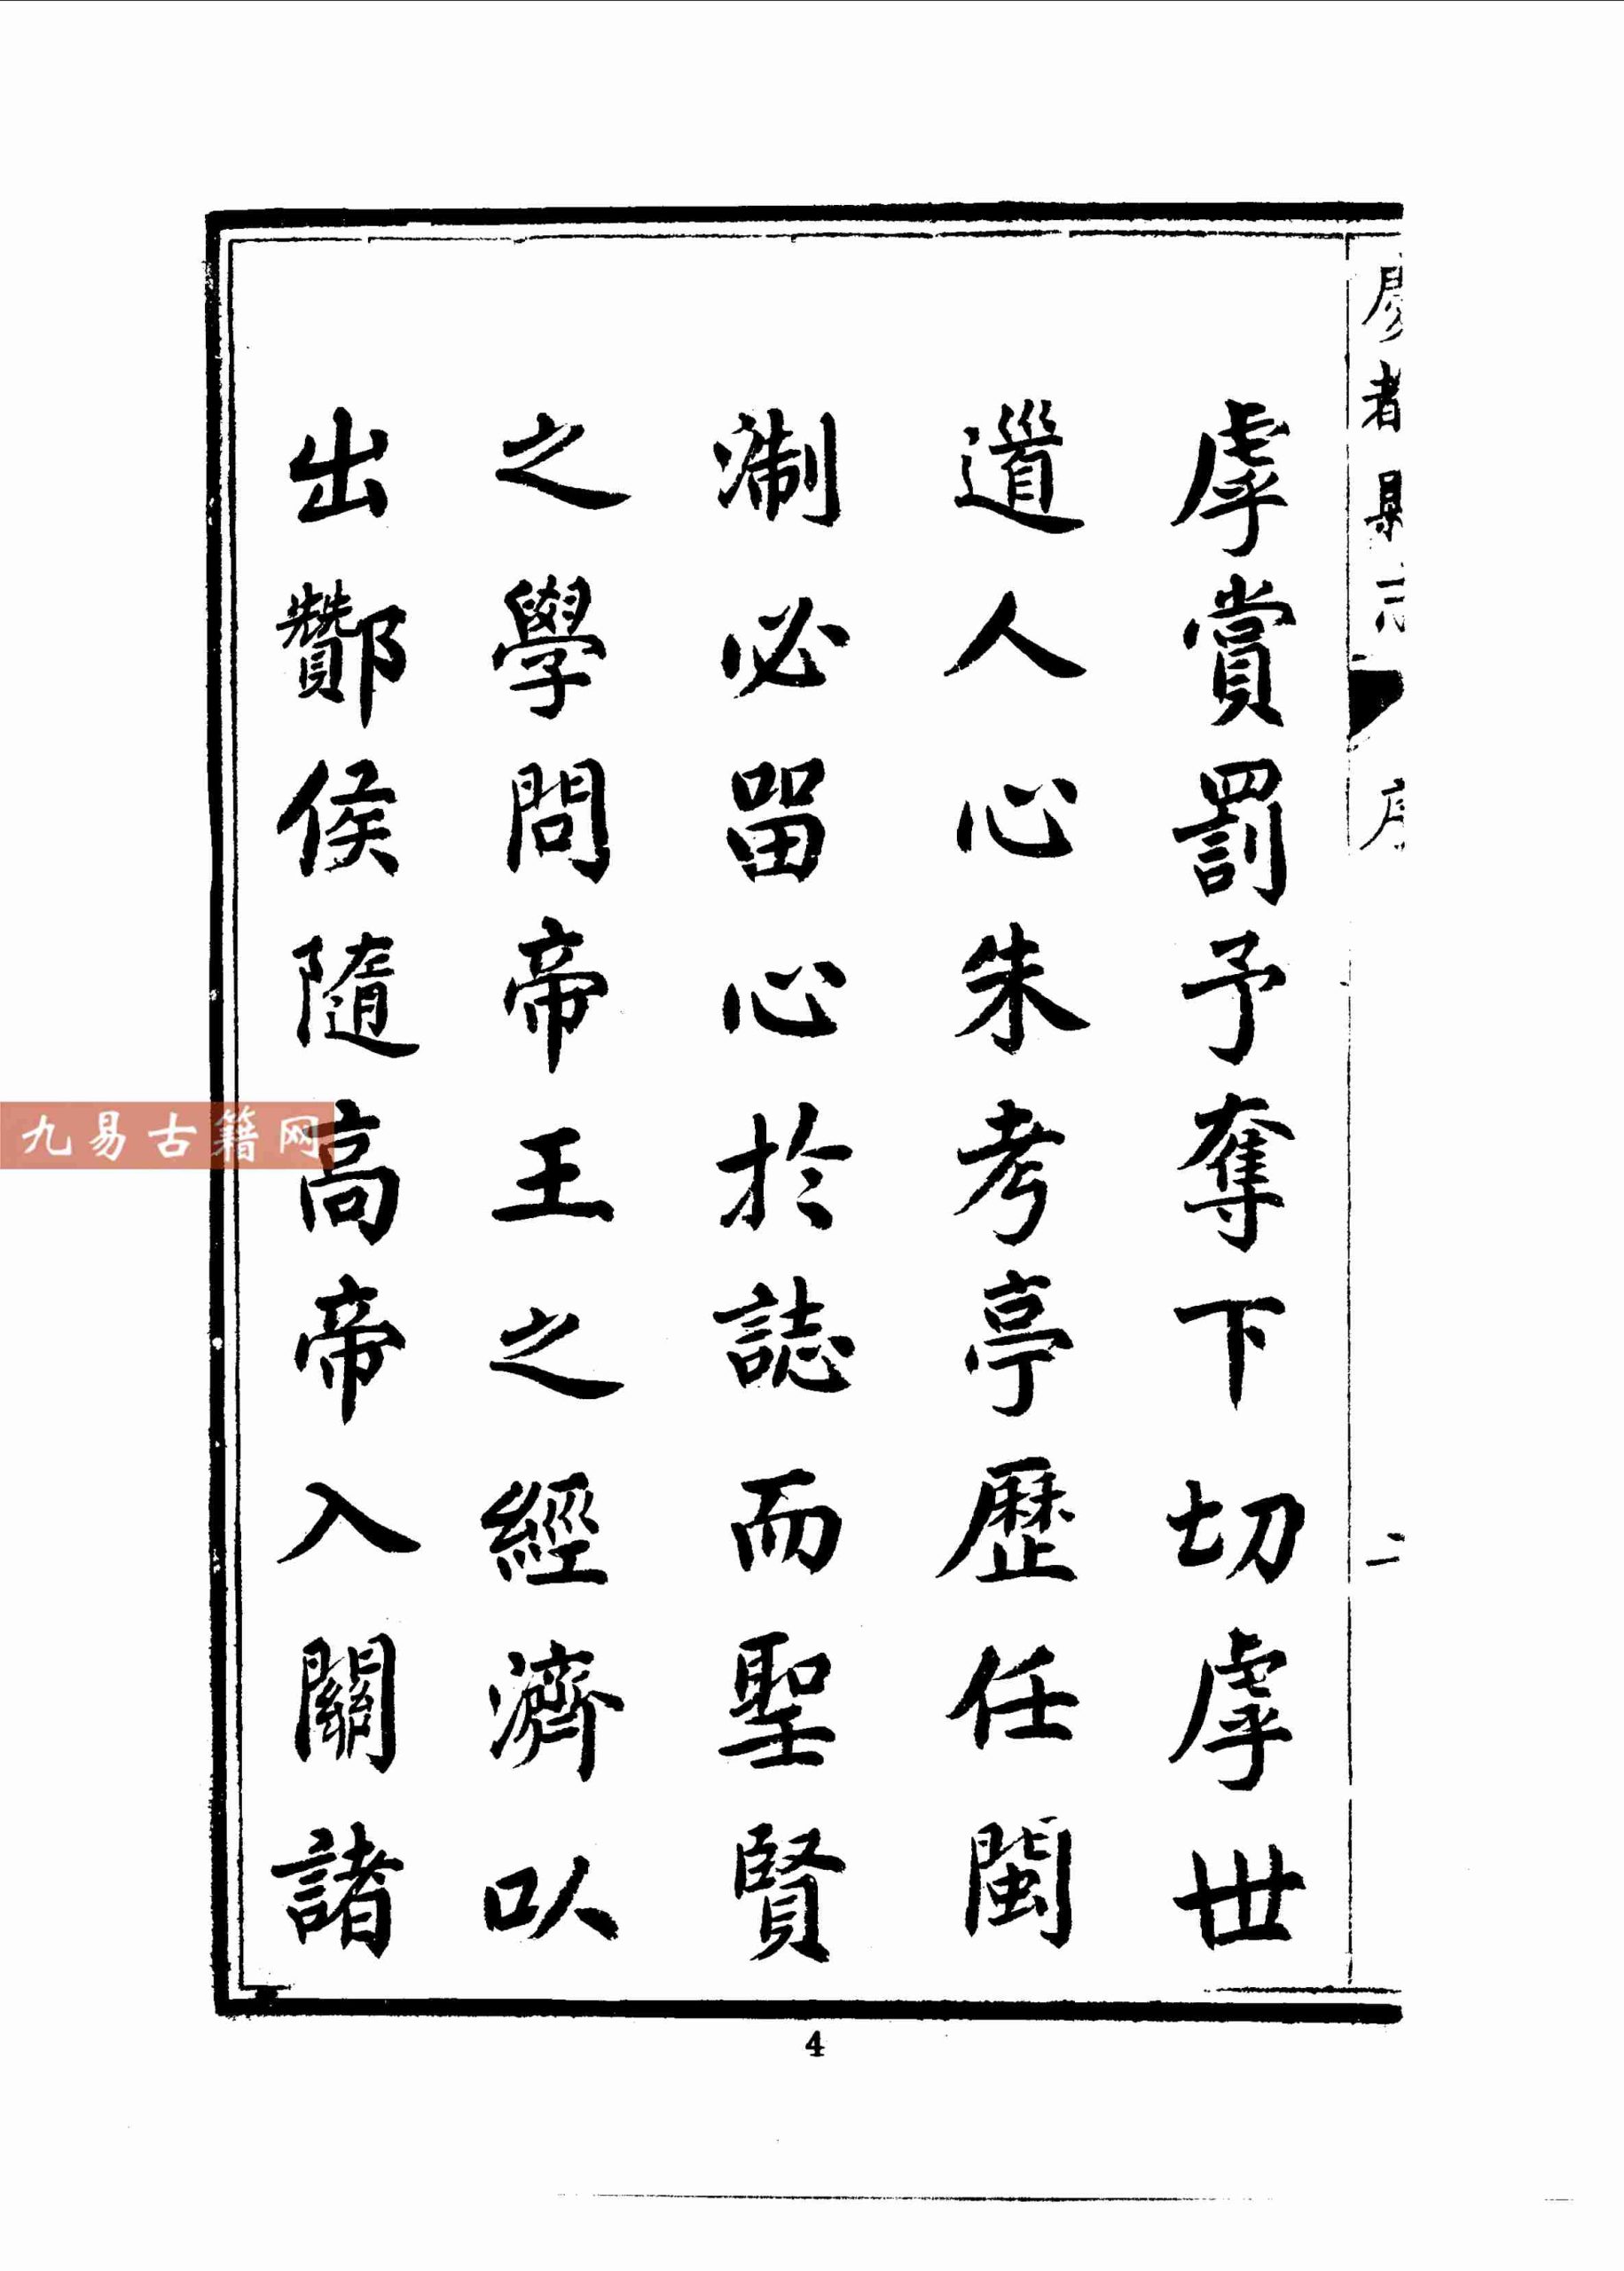 序
二
虖賞罰予奪下切虖世
道人心朱考亭歴任閩
淛必㽞心於誌而聖賢
之學問帝王之經濟㕥
出酇侯隨高帝入關諸
九易古籍网
4